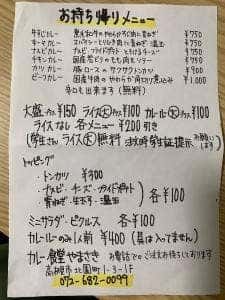 お持ち帰りメニュー
牛すじカレー 黒毛和牛のやわらか牛肉に青ねぎ ¥750
キーマカレー ¥750
ナスビカレー ナスビ フライドポテト とろけるチーズ ¥750
チキンカレー 国産若どりのもも肉とソテー ¥750
カツカレー 豚ロースのサクサクトンカツ ¥900
ビーフカレー 国産牛肉のやわらか角切り煮込み ¥1.000
辛口も出来ます（無料）
大盛 プラス¥150 ライス大プラス¥100 カレー大プラス¥100
ライスなし 各メニュー ¥200引き
(学生さん ライス大無料 注文時学生証提示 お願いします)
トッピング
・トンカツ ¥300
・ナスビ・チーズ・フライドポテト
青ねぎ・生玉子・温玉 各¥100
ミニサラダ・ピクルス 各¥100
カレールーのみ1人前 ¥400（具は入ってません）
カレー食堂やまさき お電話でのご注文お待ちしております
高槻市北園町1-3-1F
072-682-0099